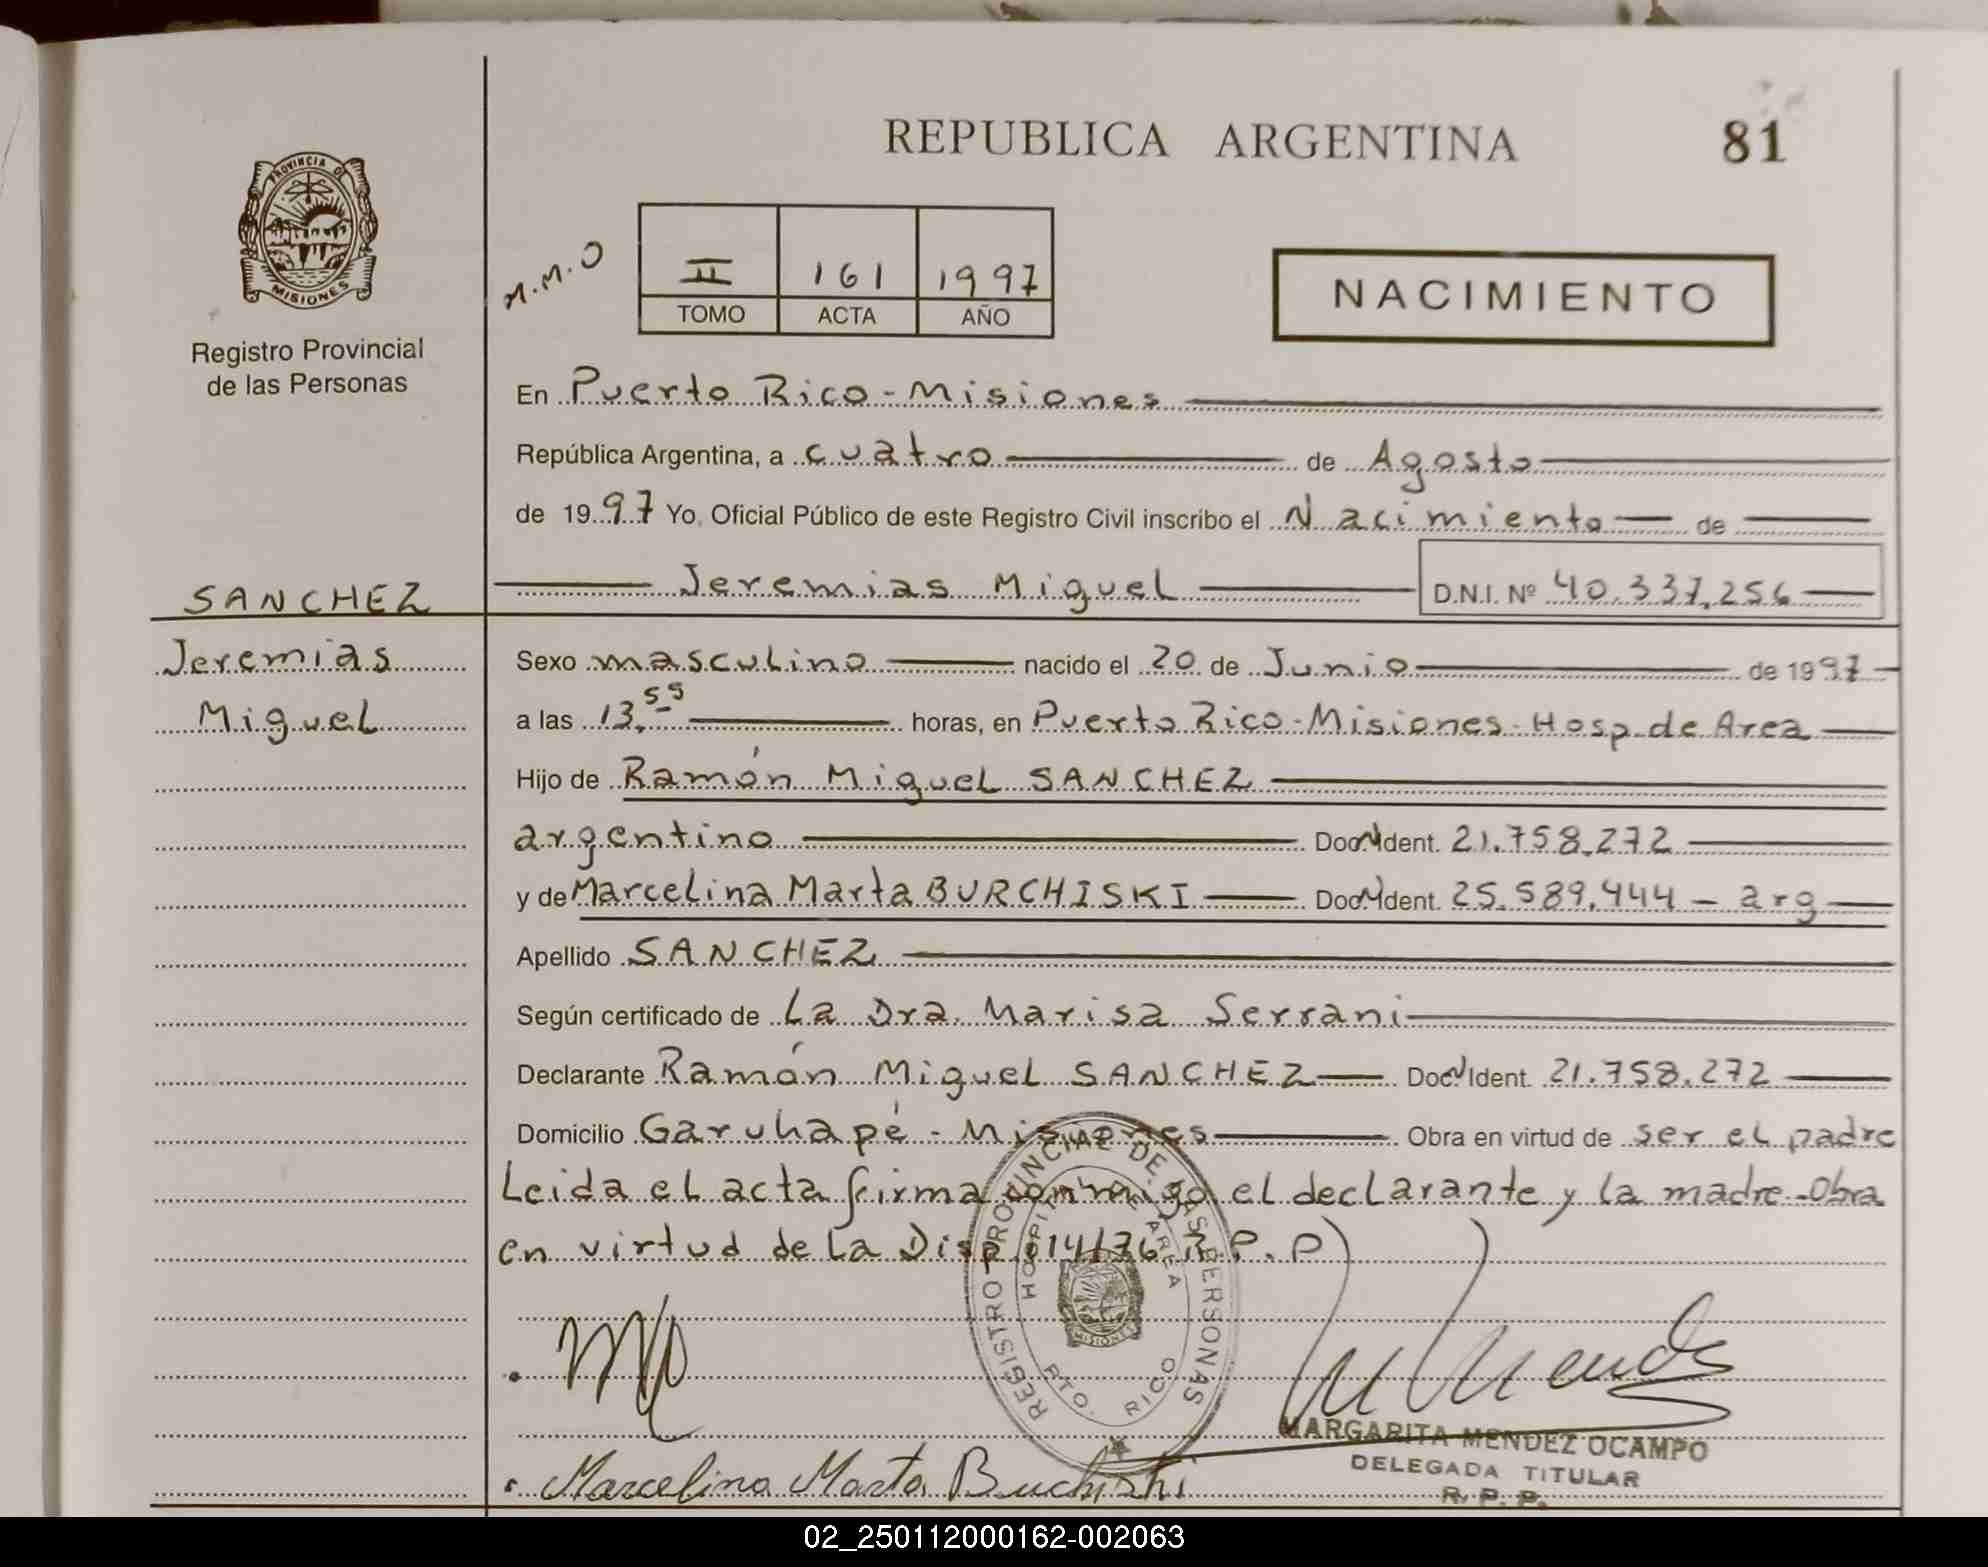 REPUBLICA ARGENTINA
81
PROVINCIA DE
MISIONES
Registro Provincial
de las Personas
M.M.O
II 161 1997
TOMO ACTA AÑO
NACIMIENTO
En Puerto Rico - Misiones
República Argentina, a cuatro de Agosto
de 1997 Yo, Oficial Público de este Registro Civil inscribo el Nacimiento de
SANCHEZ
Jeremias Miguel D.N.I. Nº 40.337.256
Jeremias
Miguel
Sexo masculino nacido el 20 de Junio de 1997
a las 13.55 horas, en Puerto Rico - Misiones - Hosp. de Area
Hijo de Ramón Miguel SANCHEZ
argentino Doc. Ident. 21.758.272
y de Marcelina Marta BURCHISKI Doc. Ident. 25.589.444 - arg
Apellido SANCHEZ
Según certificado de La Dra. Marisa Serrani
Declarante Ramón Miguel SANCHEZ Doc. Ident. 21.758.272
Domicilio Garuhapé - Misiones Obra en virtud de ser el padre
Leida el acta firma conmigo el declarante y la madre - Obra
en virtud de la Disp. 014/76 R.P.P
REGISTRO PROVINCIAL DE LAS PERSONAS
HOSPITAL DE AREA
PTO. RICO
MISIONES
MARGARITA MENDEZ OCAMPO
DELEGADA TITULAR
R. P. P.
Marcelina Marta Buchiski
02_250112000162-002063